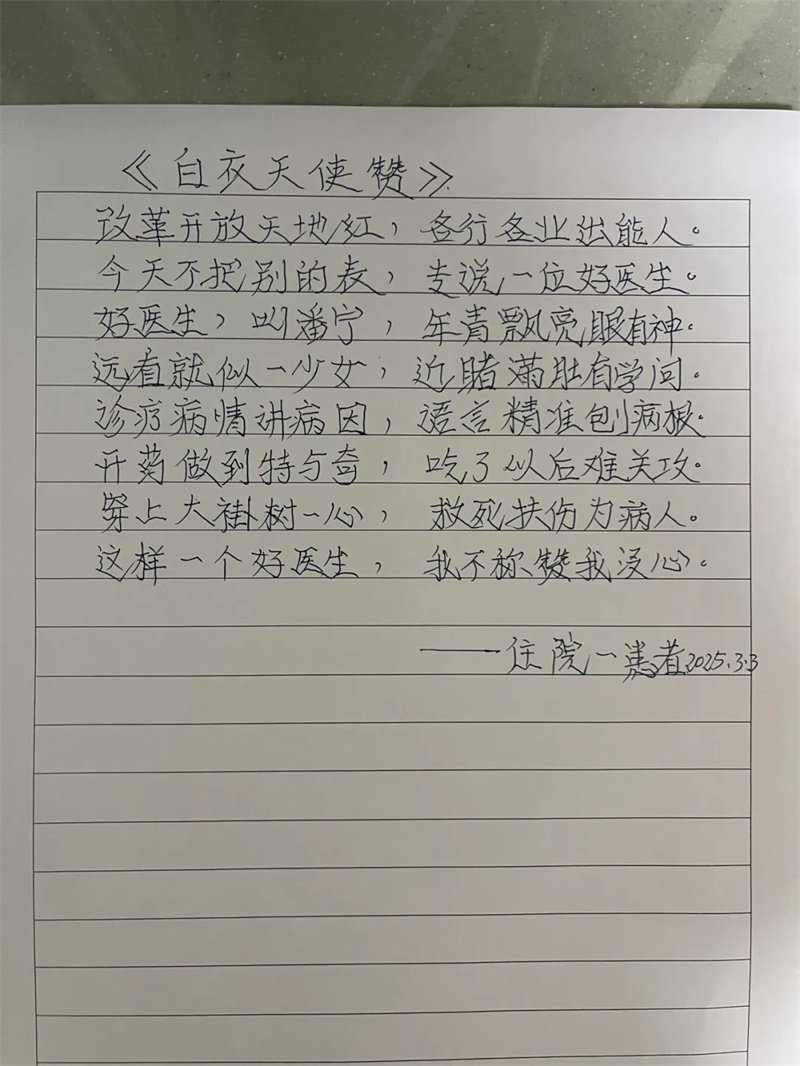 《白衣天使赞》
改革开放天地红，各行各业出能人。
今天不把别的表，专说一位好医生。
好医生，叫潘宁，年青飘亮眼有神。
远看就似一少女，近睹满肚有学问。
诊疗病情讲病因，语言精准刨病根。
开药做到特与奇，吃了以后难关攻。
穿上大褂树一心，救死扶伤为病人。
这样一个好医生，我不称赞我没心。
——住院一患者2025.3.3